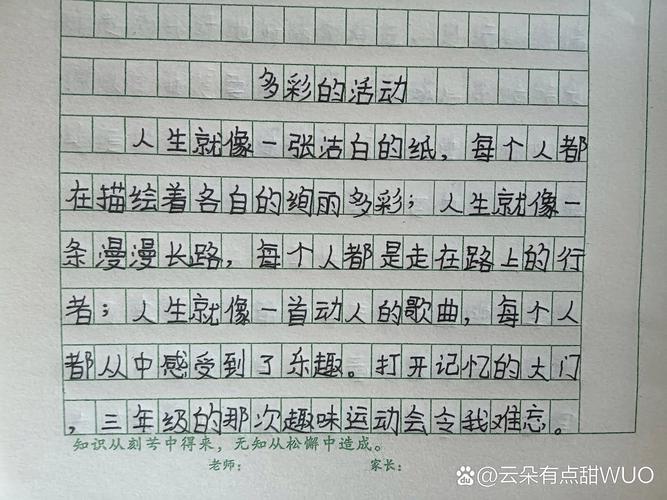 多彩的活动
人生就像一张洁白的纸，每个人都
在描绘着各自的绚丽多彩；人生就像一
条漫漫长路，每个人都是走在路上的行
者；人生就像一首动人的歌曲，每个人
都从中感受到了乐趣。打开记忆的大门
，三年级的那次趣味运动会令我难忘。
知识从刻苦中得来，无知从松懈中造成。
老师： 家长：
@云朵有点甜WUO